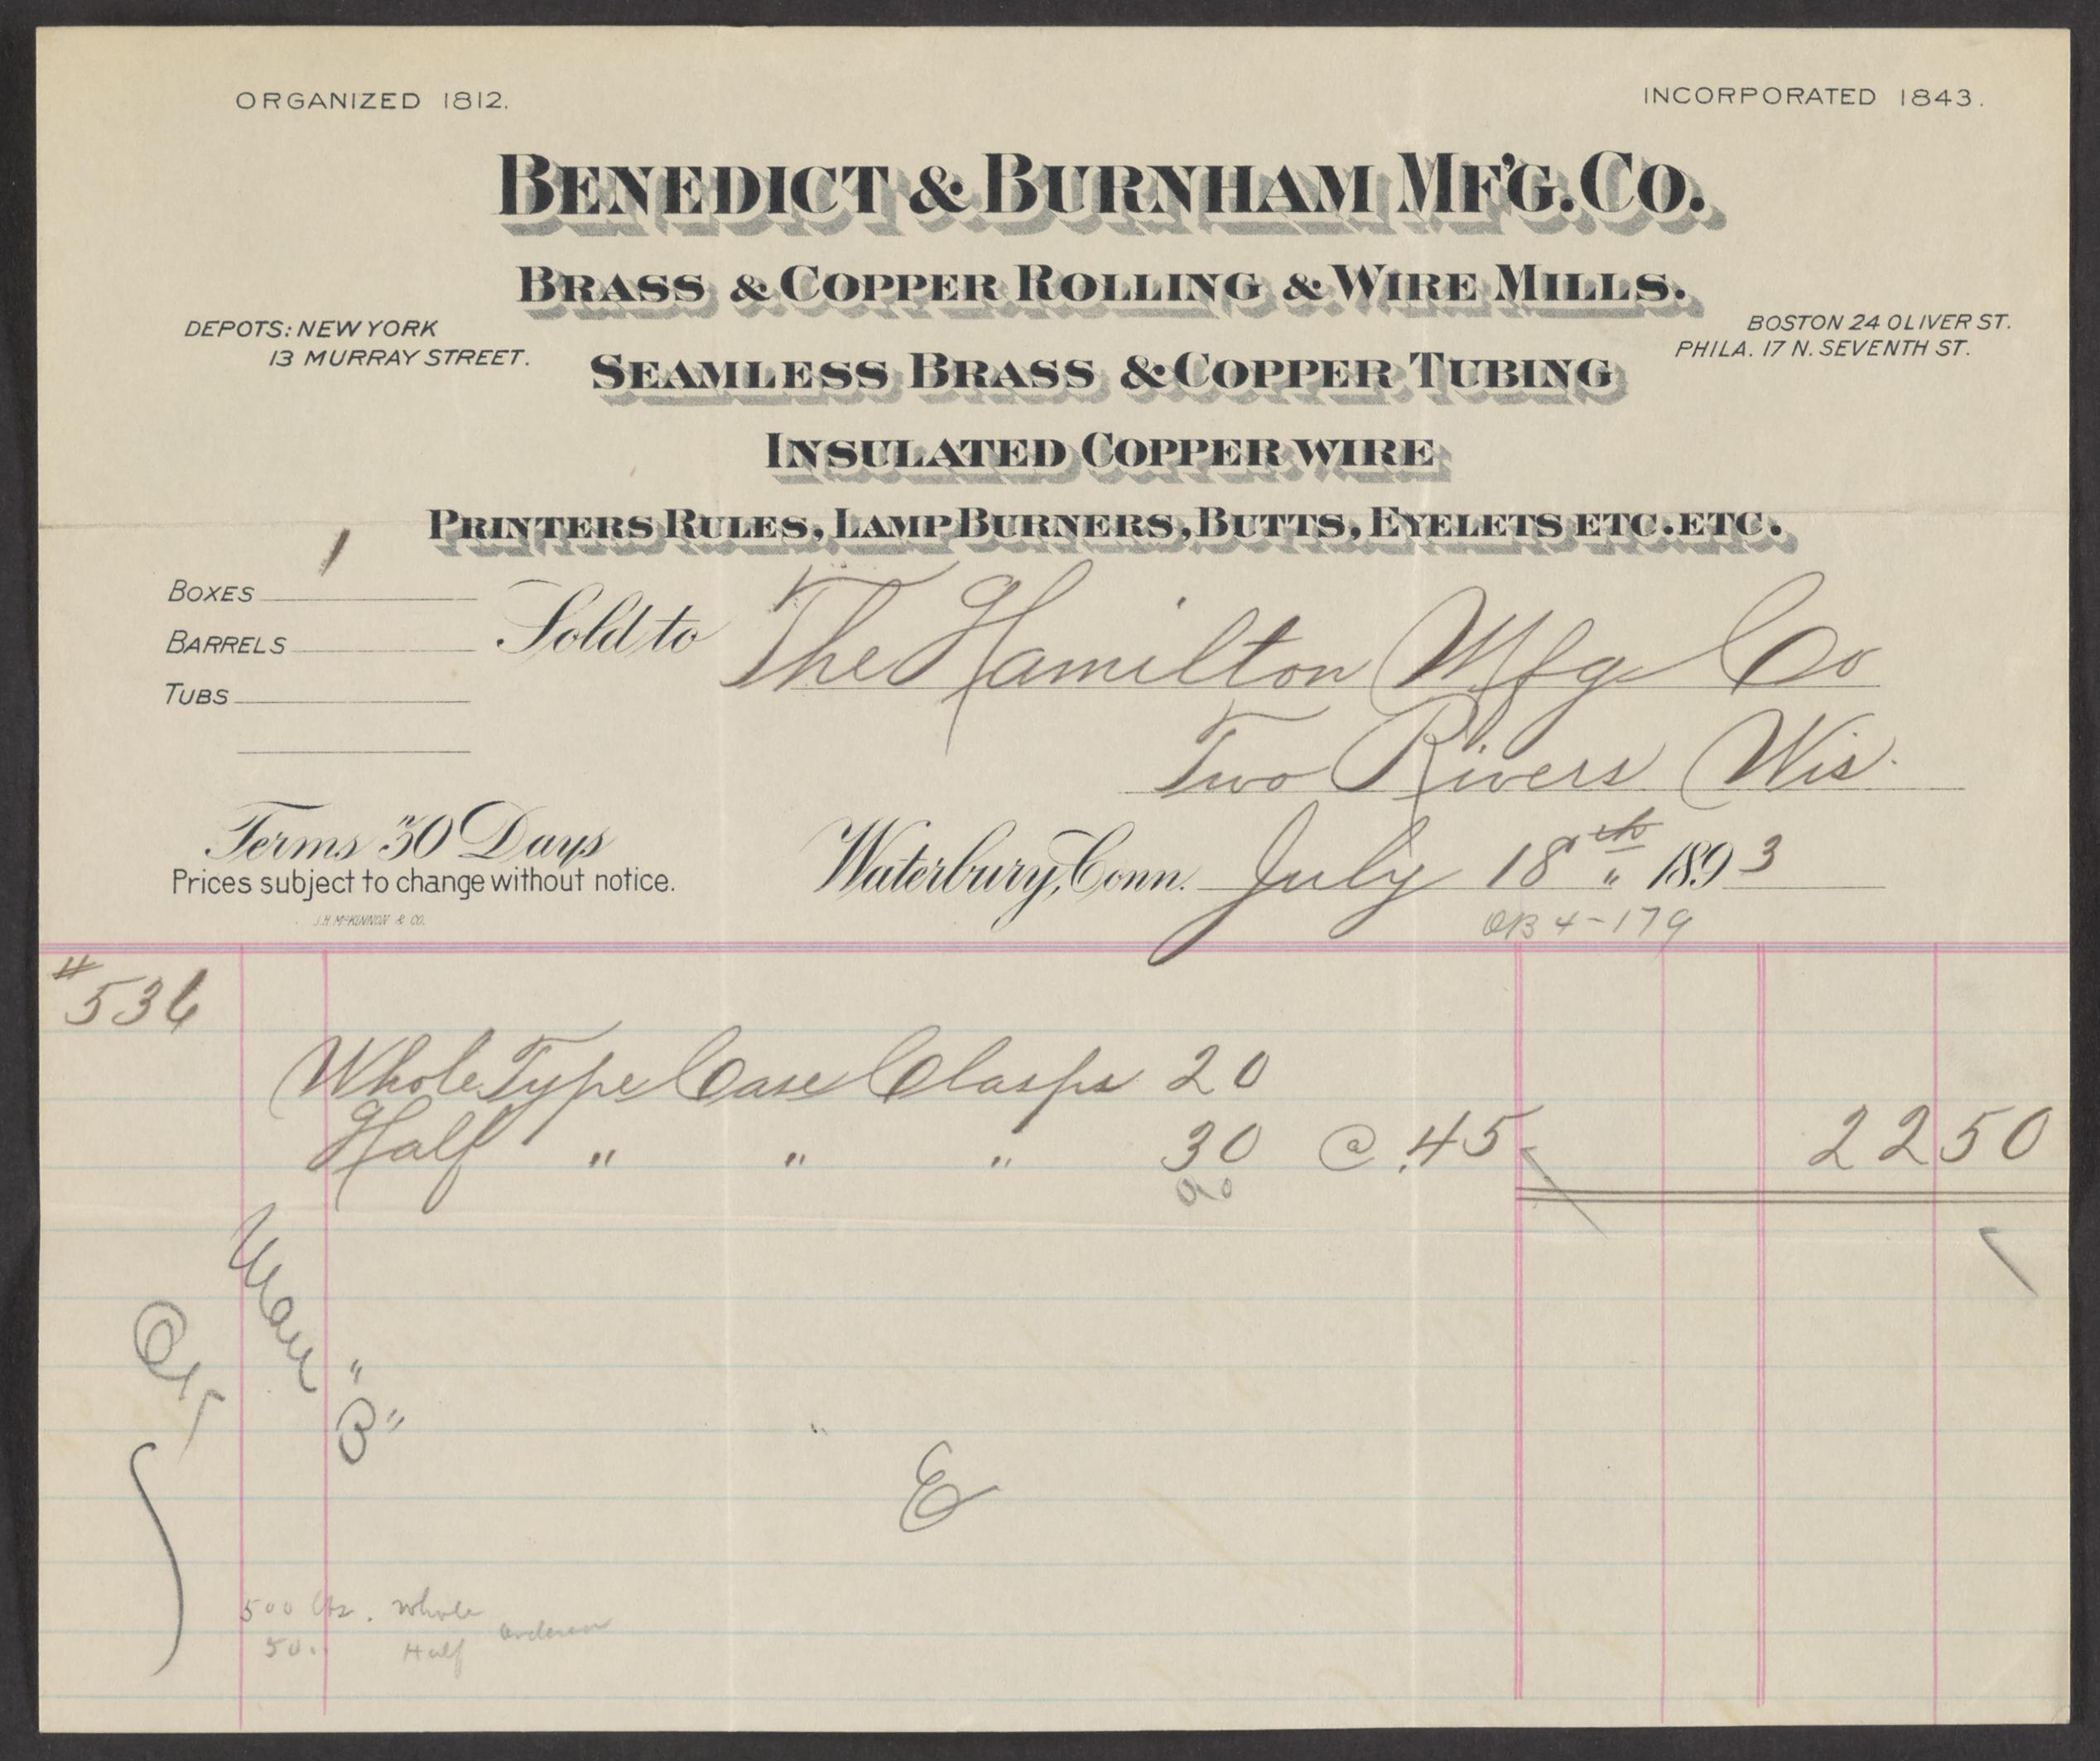 ORGANIZED 1812.
INCORPORATED 1843.
BENEDICT & BURNHAM MF'G. CO.
BRASS & COPPER ROLLING & WIRE MILLS.
DEPOTS: NEW YORK
13 MURRAY STREET.
BOSTON 24 OLIVER ST.
PHILA. 17 N. SEVENTH ST.
SEAMLESS BRASS & COPPER TUBING
INSULATED COPPER WIRE
PRINTERS RULES, LAMP BURNERS, BUTTS, EYELETS ETC. ETC.
BOXES 1
BARRELS
TUBS
Sold to The Hamilton Mfg Co
Two Rivers Wis.
Terms 30 Days
Prices subject to change without notice.
J.H. McKINNON & CO.
Waterbury, Conn. July 18th " 1893
OB 4-179
#536
Whole Type Case Clasps 20
Half " " " 30 @ .45 22 50
"B"
OK
E
500 lbs. Whole
50 " Half